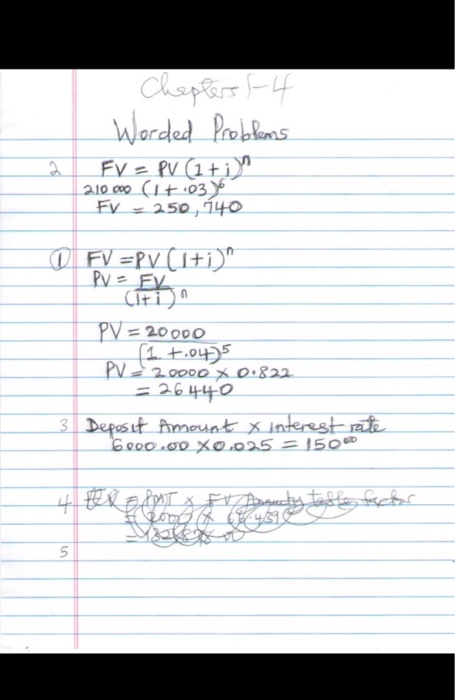 Chapters 1-4
Worded Problems
2 FV = PV (1+i)^n
210 000 (1+.03)^6
FV = 250,740
① FV = PV (1+i)^n
PV = FV
(1+i)^n
PV = 20000
(1 +.04)^5
PV = 20000 x 0.822
= 26440
3 Deposit Amount x interest rate
6000.00 x 0.025 = 150.00
4 = PMT x FV Annuity table factor
5